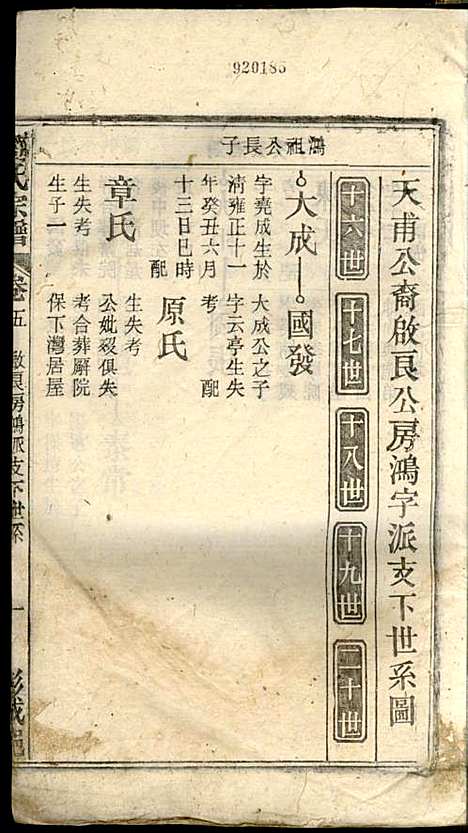 920186
天甫公裔啟良公房鴻字派支下世系圖
十六世
十七世
十八世
十九世
二十世
鴻祖公長子
大成
國發
字堯成生於
清雍正十一
年癸丑六月
十三日巳時
配
章氏
生失考
生子一
大成公之子
字云亭生失
考
配
原氏
生失考
公妣歿俱失
考合葬廟院
保下灣居屋
氏宗譜
卷五
啟良房鴻派支下世系
一
彭城邑